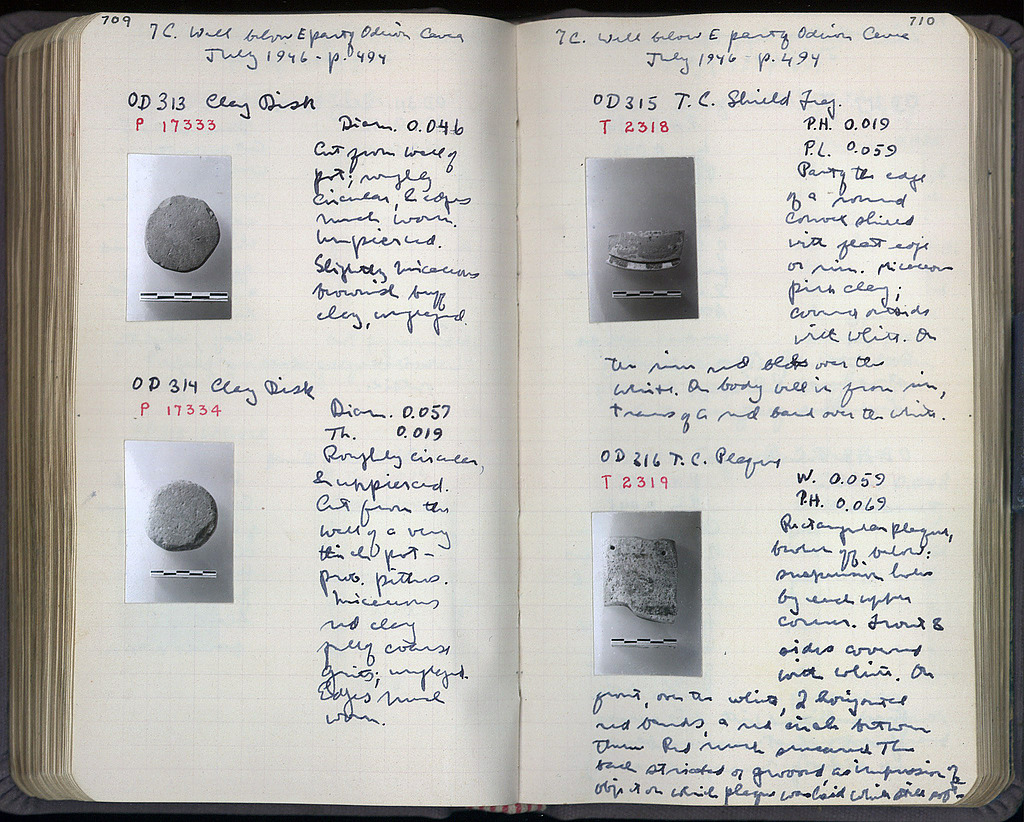 709
7 C. Well below E party Odeion Cavea
July 1946 - p. 494
OD 313 Clay Disk
P 17333
Diam. 0.046
Cut from wall of
pot; roughly
circular, & edges
much worn.
Unpierced.
Slightly micaceous
brownish buff
clay, unglazed.
OD 314 Clay Disk
P 17334
Diam. 0.057
Th. 0.019
Roughly circular,
& unpierced.
Cut from the
wall of a very
thick pot -
prob. pithos.
Micaceous
red clay
full of coarse
grits; unglazed.
Edges much
worn.
710
7 C. Well below E party Odeion Cavea
July 1946 - p. 494
OD 315 T.C. Shield Frag.
T 2318
P.H. 0.019
P.L. 0.059
Part of the edge
of a round
convex shield
with flat edge
or rim. Micaceous
pink clay;
covered outside
with white. On
the rim red over the
white. On body well in from rim,
traces of a red band over the white.
OD 316 T.C. Plaque
T 2319
W. 0.059
P.H. 0.069
Rectangular plaque,
broken off below;
suspension holes
by each upper
corner. Front &
sides covered
with white. On
front, over the white, 2 horizontal
red bands, a red circle between
them. Red much smeared. The
back striated or grooved, as impression of
object on which plaque was laid while still soft -